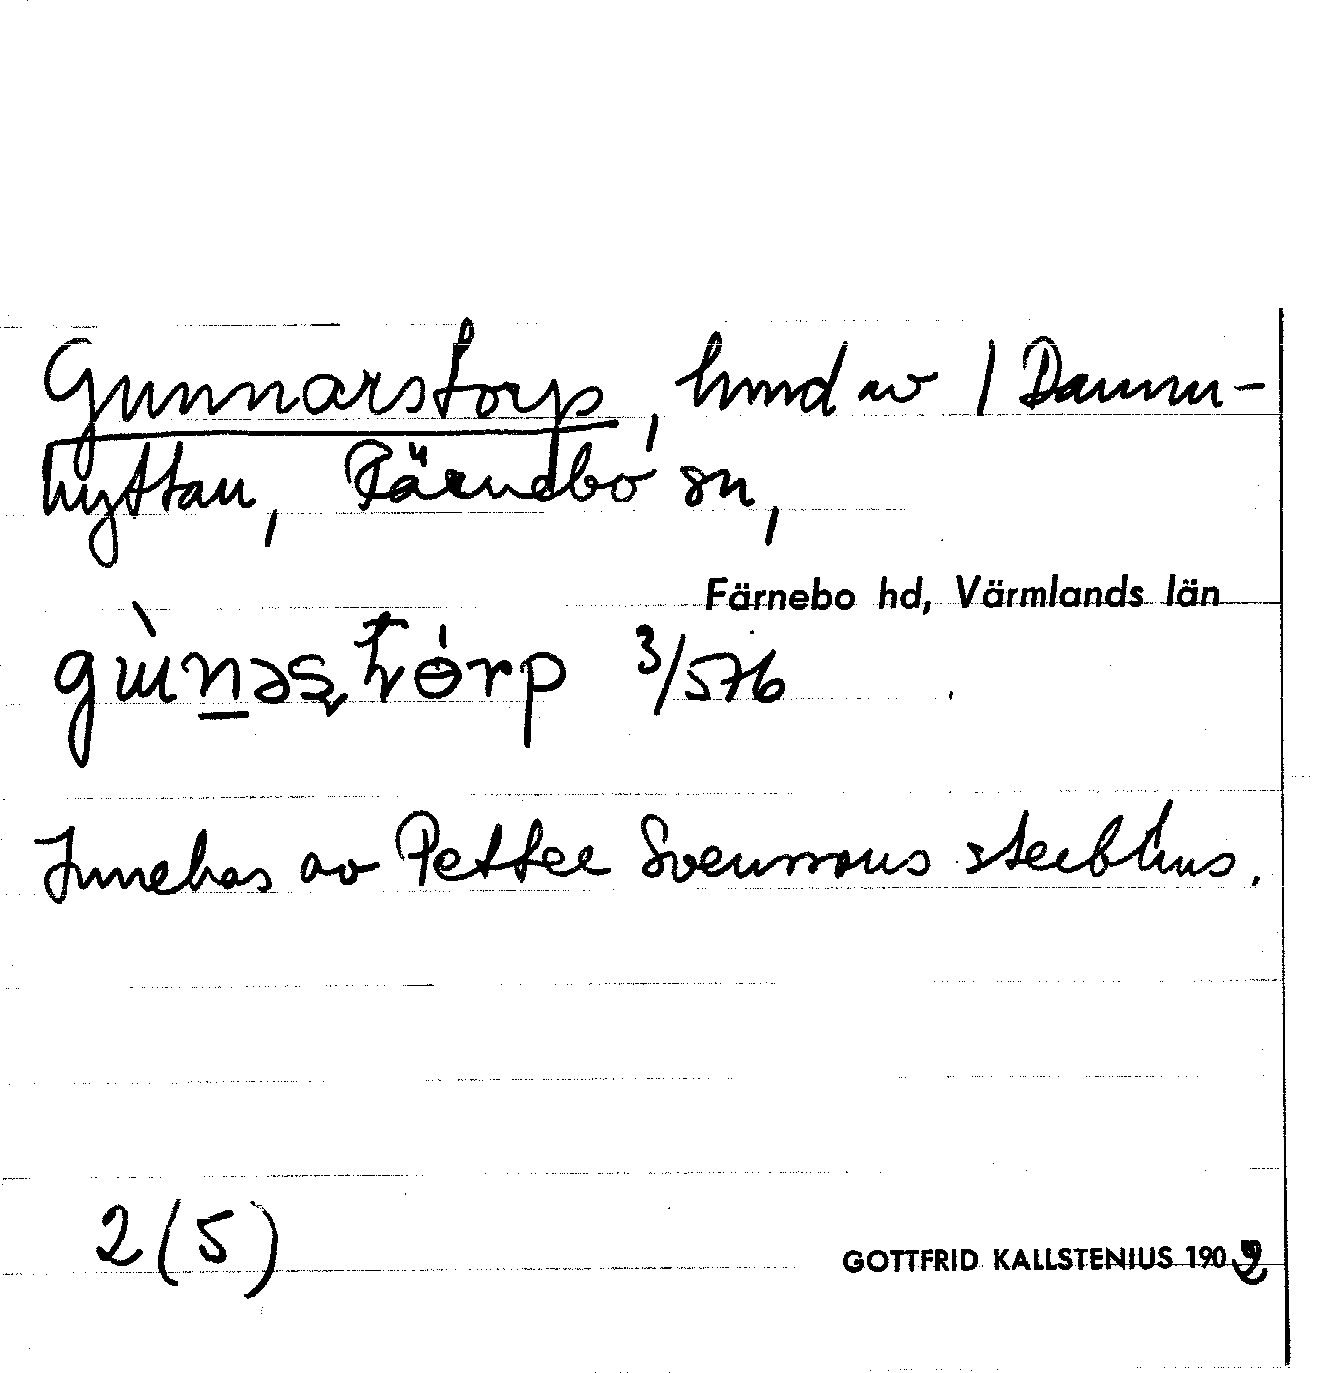 Gunnarstorp, hmd av 1 Damm-
hyttan, Färnebo sn,
Färnebo hd, Värmlands län
gùnas tórp 3/576
Innehas av Petter Svenssons sterbhus.
2 (5)
GOTTFRID KALLSTENIUS 1902